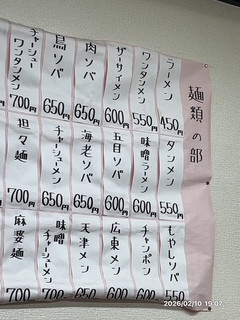 麺類の部
ラーメン 450円
ワンタンメン 550円
ザーサイメン 600円
肉ソバ 650円
鳥ソバ 650円
チャーシューワンタンメン 700円
タンメン 550円
味噌ラーメン 600円
五目ソバ 600円
海老ソバ 650円
チャーシューメン 650円
担々麺 700円
もやしソバ 550
チャンポン 600
広東メン 600
天津メン 600
味噌チャーシューメン 700
麻婆麺 700
2026/02/10 19:07